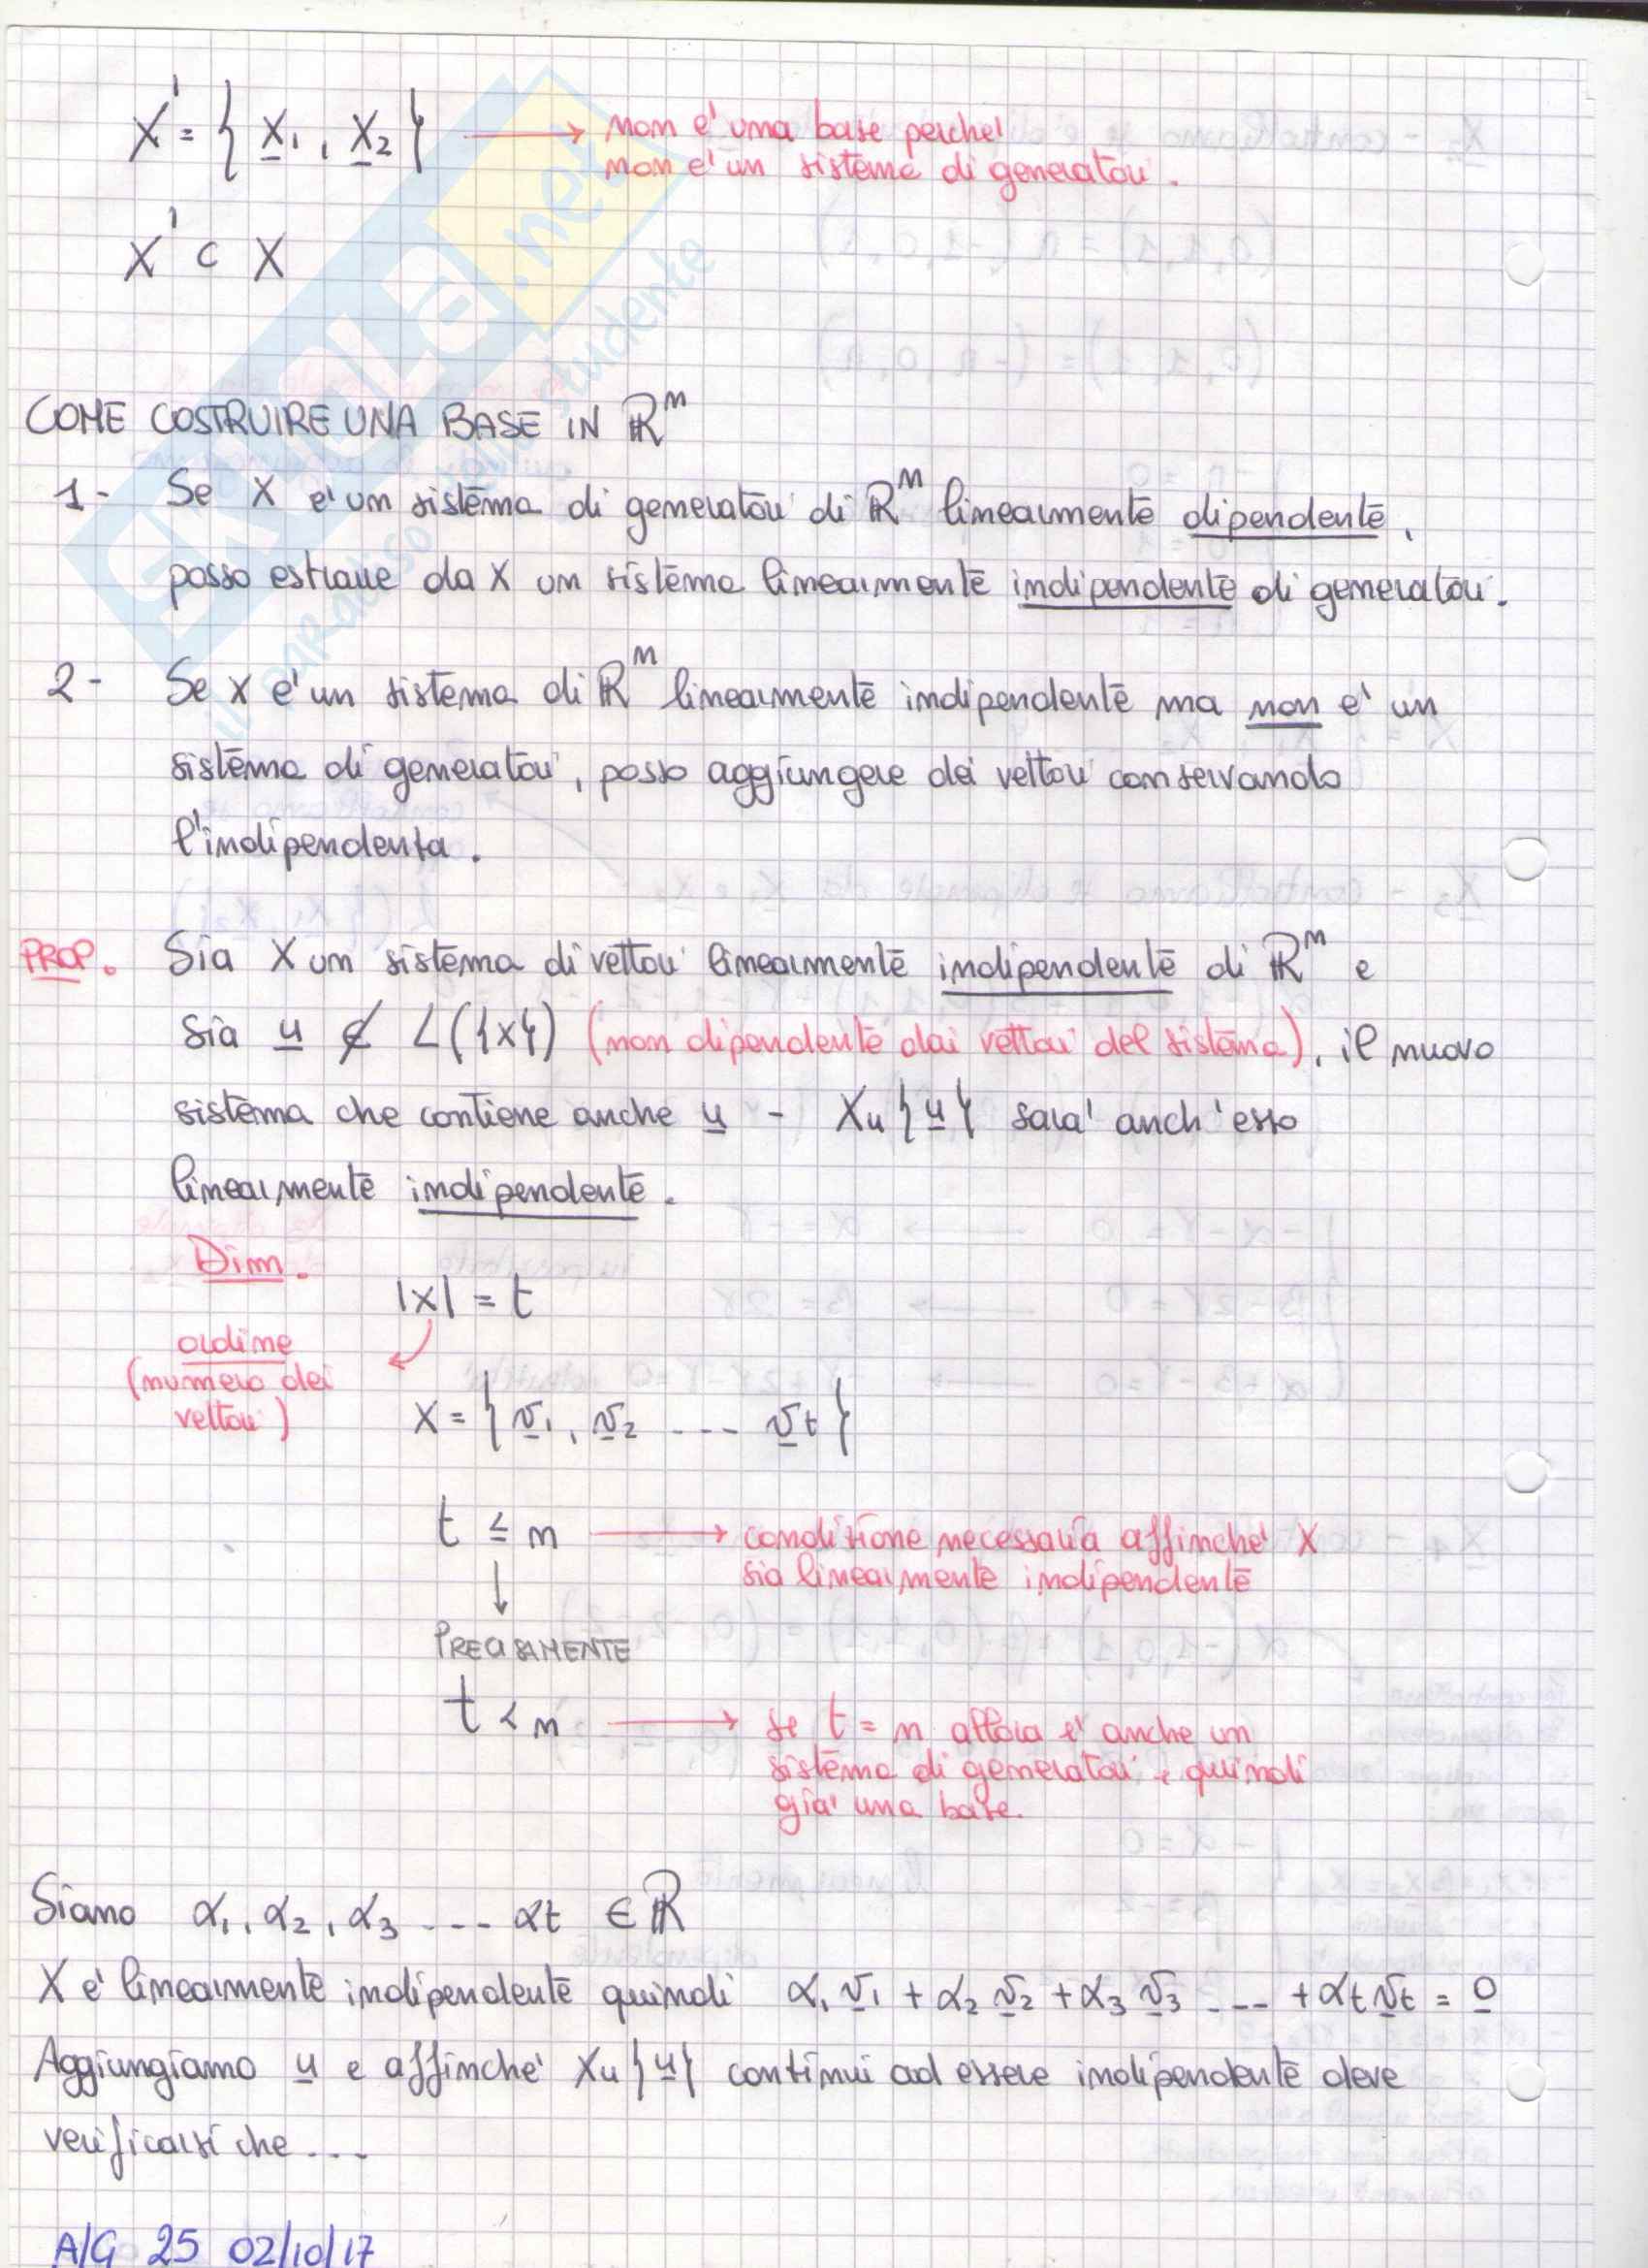 X' = { x1, x2 } → non e' una base perche'
non e' un sistema di generatori.
X' ⊂ X
COME COSTRUIRE UNA BASE IN ℝⁿ
1- Se X e' un sistema di generatori di ℝⁿ linearmente dipendente,
posso estrarre da X un sistema linearmente indipendente di generatori.
2- Se X e' un sistema di ℝⁿ linearmente indipendente ma non e' un
sistema di generatori, posso aggiungere dei vettori conservando
l'indipendenza.
PROP. Sia X un sistema di vettori linearmente indipendente di ℝⁿ e
sia u ∉ L({X}) (non dipendente dai vettori del sistema), il nuovo
sistema che contiene anche u - X∪{u} sara' anch'esso
linearmente indipendente.
Dim.
|X| = t
ordine
(numero dei
vettori)
X = { v1, v2 --- vt }
t ≤ n → condizione necessaria affinche' X
sia linearmente indipendente
↓
PRECISAMENTE
t < n → se t = n allora e' anche un
sistema di generatori e quindi
gia' una base.
Siano α1, α2, α3 --- αt ∈ ℝ
X e' linearmente indipendente quindi α1 v1 + α2 v2 + α3 v3 --- + αt vt = 0
Aggiungiamo u e affinche' X∪{u} continui ad essere indipendente deve
verificarsi che ---
A/G 25 02/10/17
SKUOLA.net
il paradiso dello studente